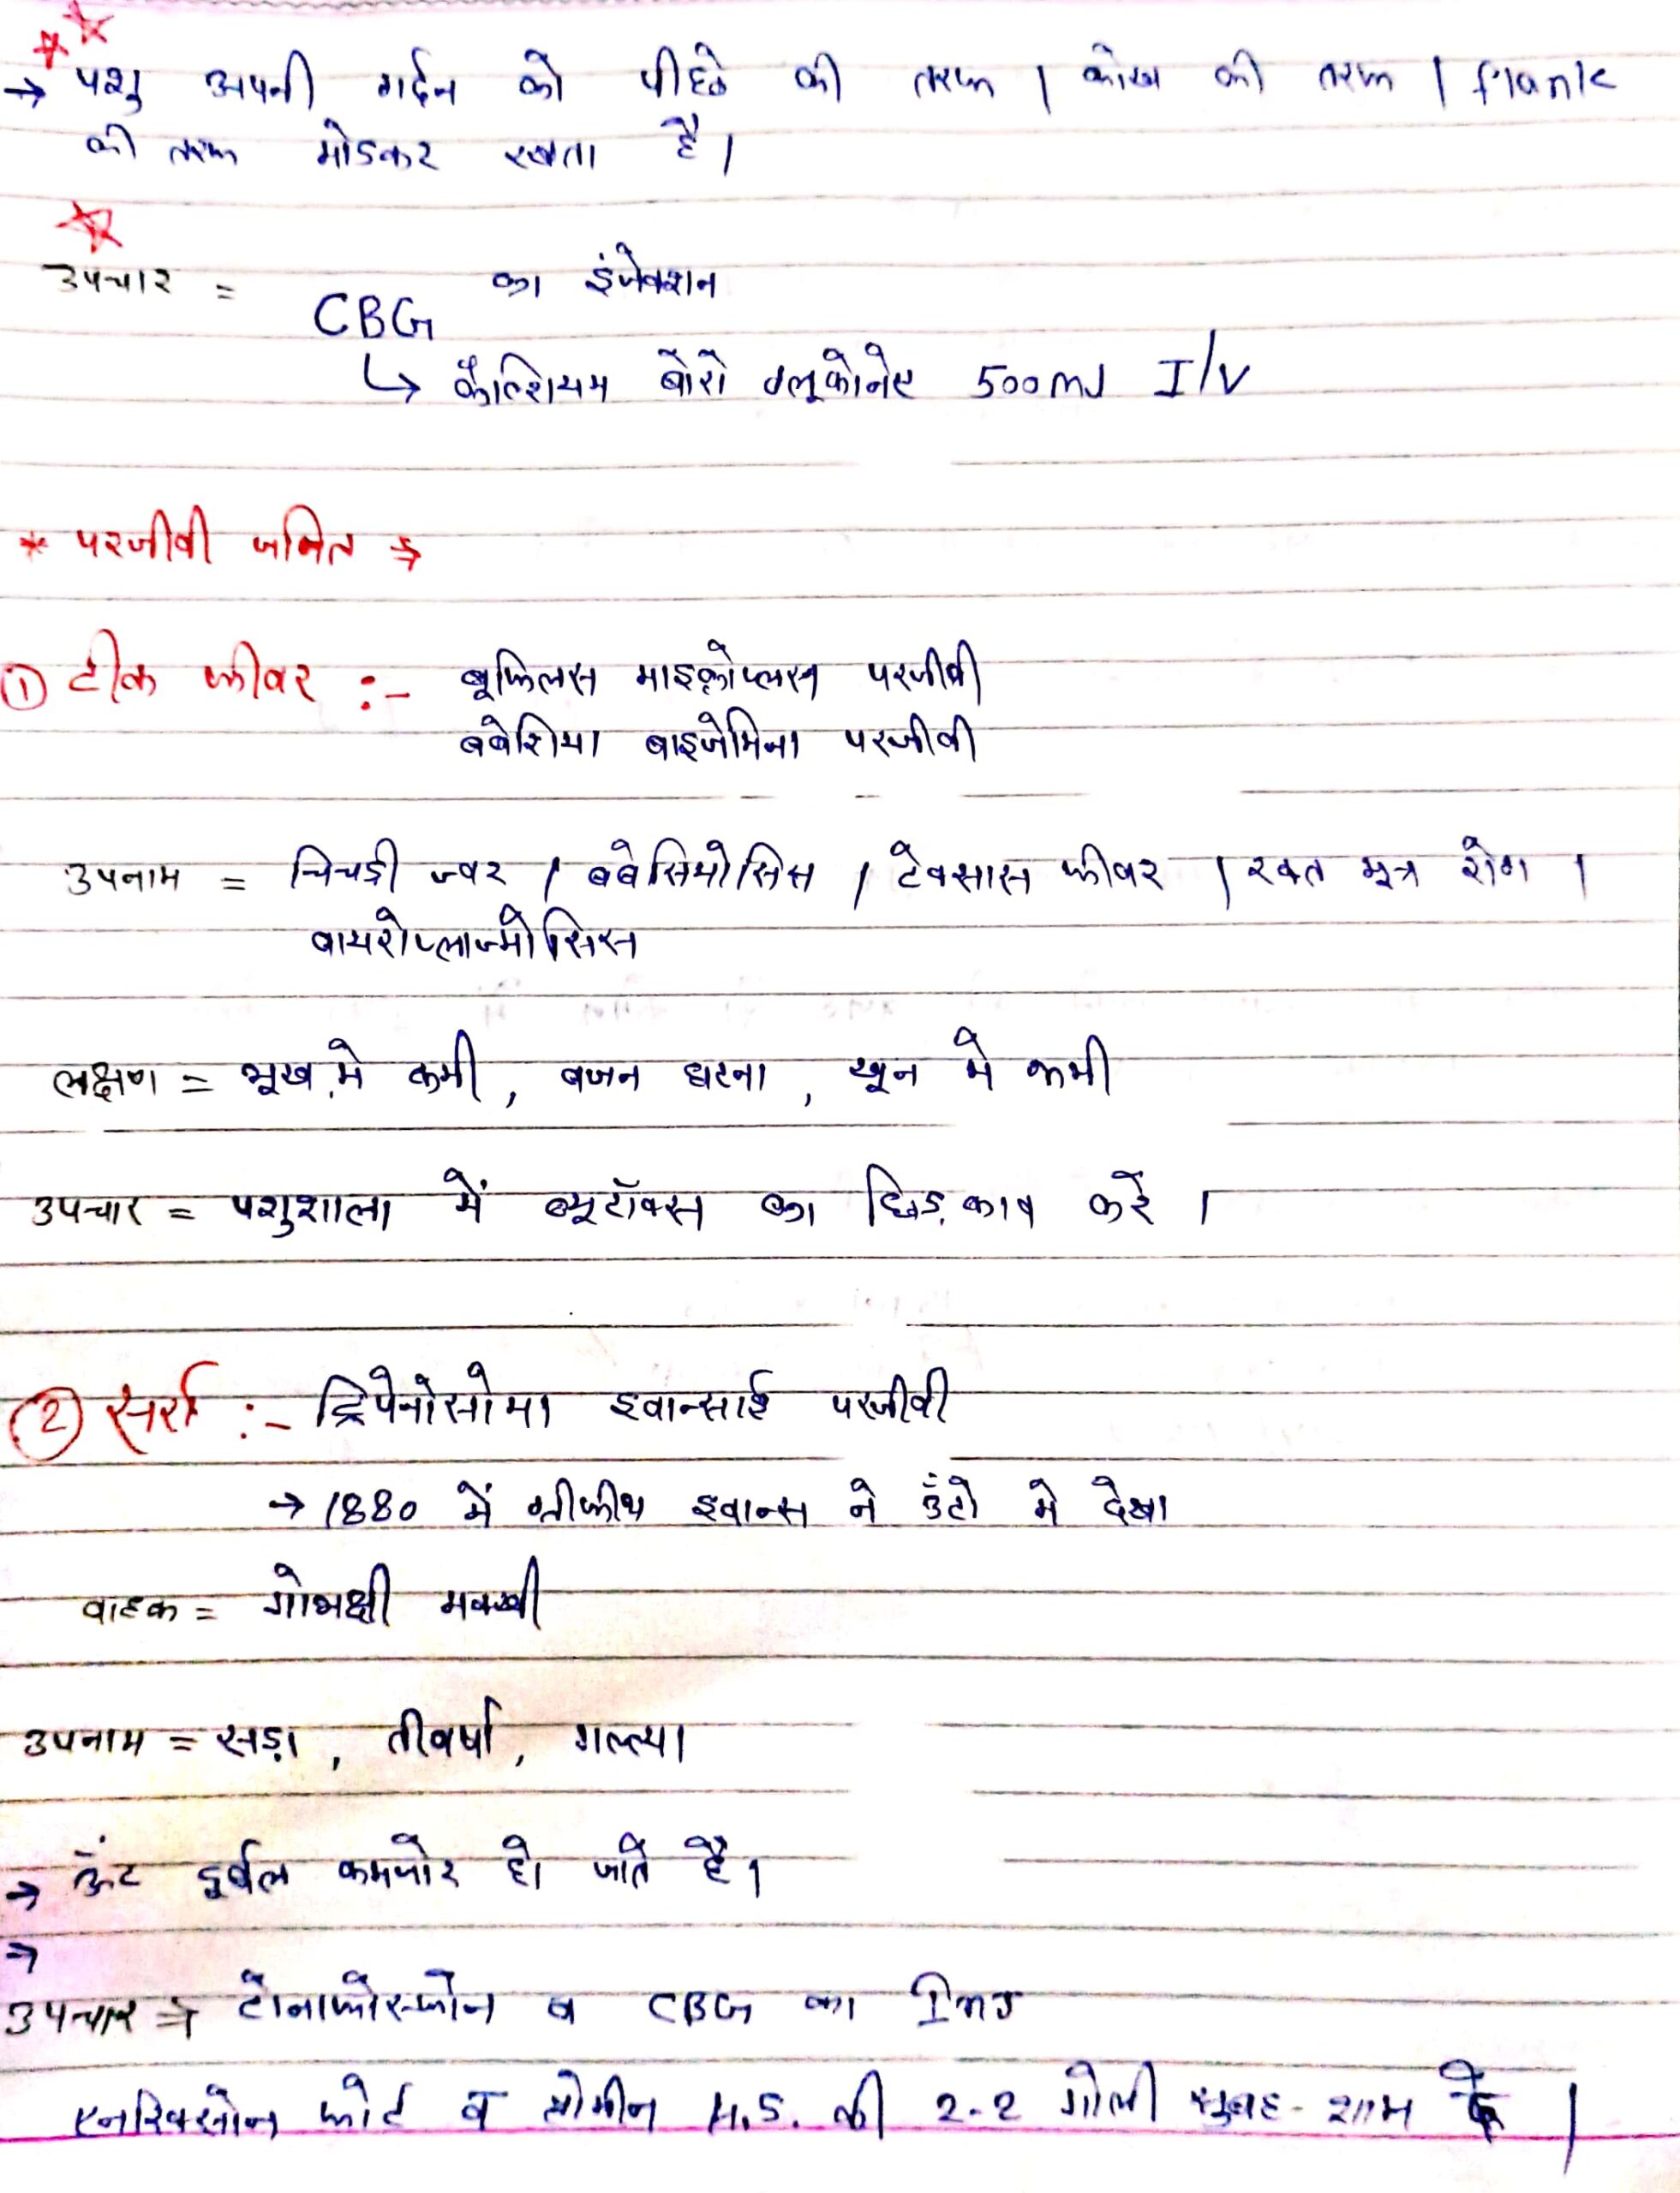 → पशु अपनी गर्दन को पीछे की तरफ / कोख की तरफ / flank
की तरफ मोडकर रखता है।
उपचार = CBG का इंजेक्शन
↳ कैल्शियम बोरो ग्लूकोनेट 500ml I/V
* परजीवी जनित ⇒
① टीक फीवर :- बूफिलस माइक्रोप्लस परजीवी
बबेशिया बाइजेमिना परजीवी
उपनाम = चिचड़ी ज्वर / बबेसियोसिस / टेक्सास फीवर / रक्त मूत्र रोग /
पायरोप्लाज्मोसिस
लक्षण = भूख में कमी, वजन घटना, खून मे कमी
उपचार = पशुशाला में ब्यूटॉक्स का छिड़काव करें ।
② सर्रा :- ट्रिपेनोसोमा इवान्साई परजीवी
→ 1880 में ग्रीफीथ इवान्स ने उँटो मे देखा
वाहक = गोभक्षी मक्खी
उपनाम = सड़ा, तीवर्षा, गल्त्या
→ ऊंट दुर्बल कमजोर हो जाते है।
→
उपचार ⇒ टोनाफोस्फोन व CBG का Inj
एनरिक्सोन फोर्ट व H.S. की 2-2 गोली सुबह - शाम दे |